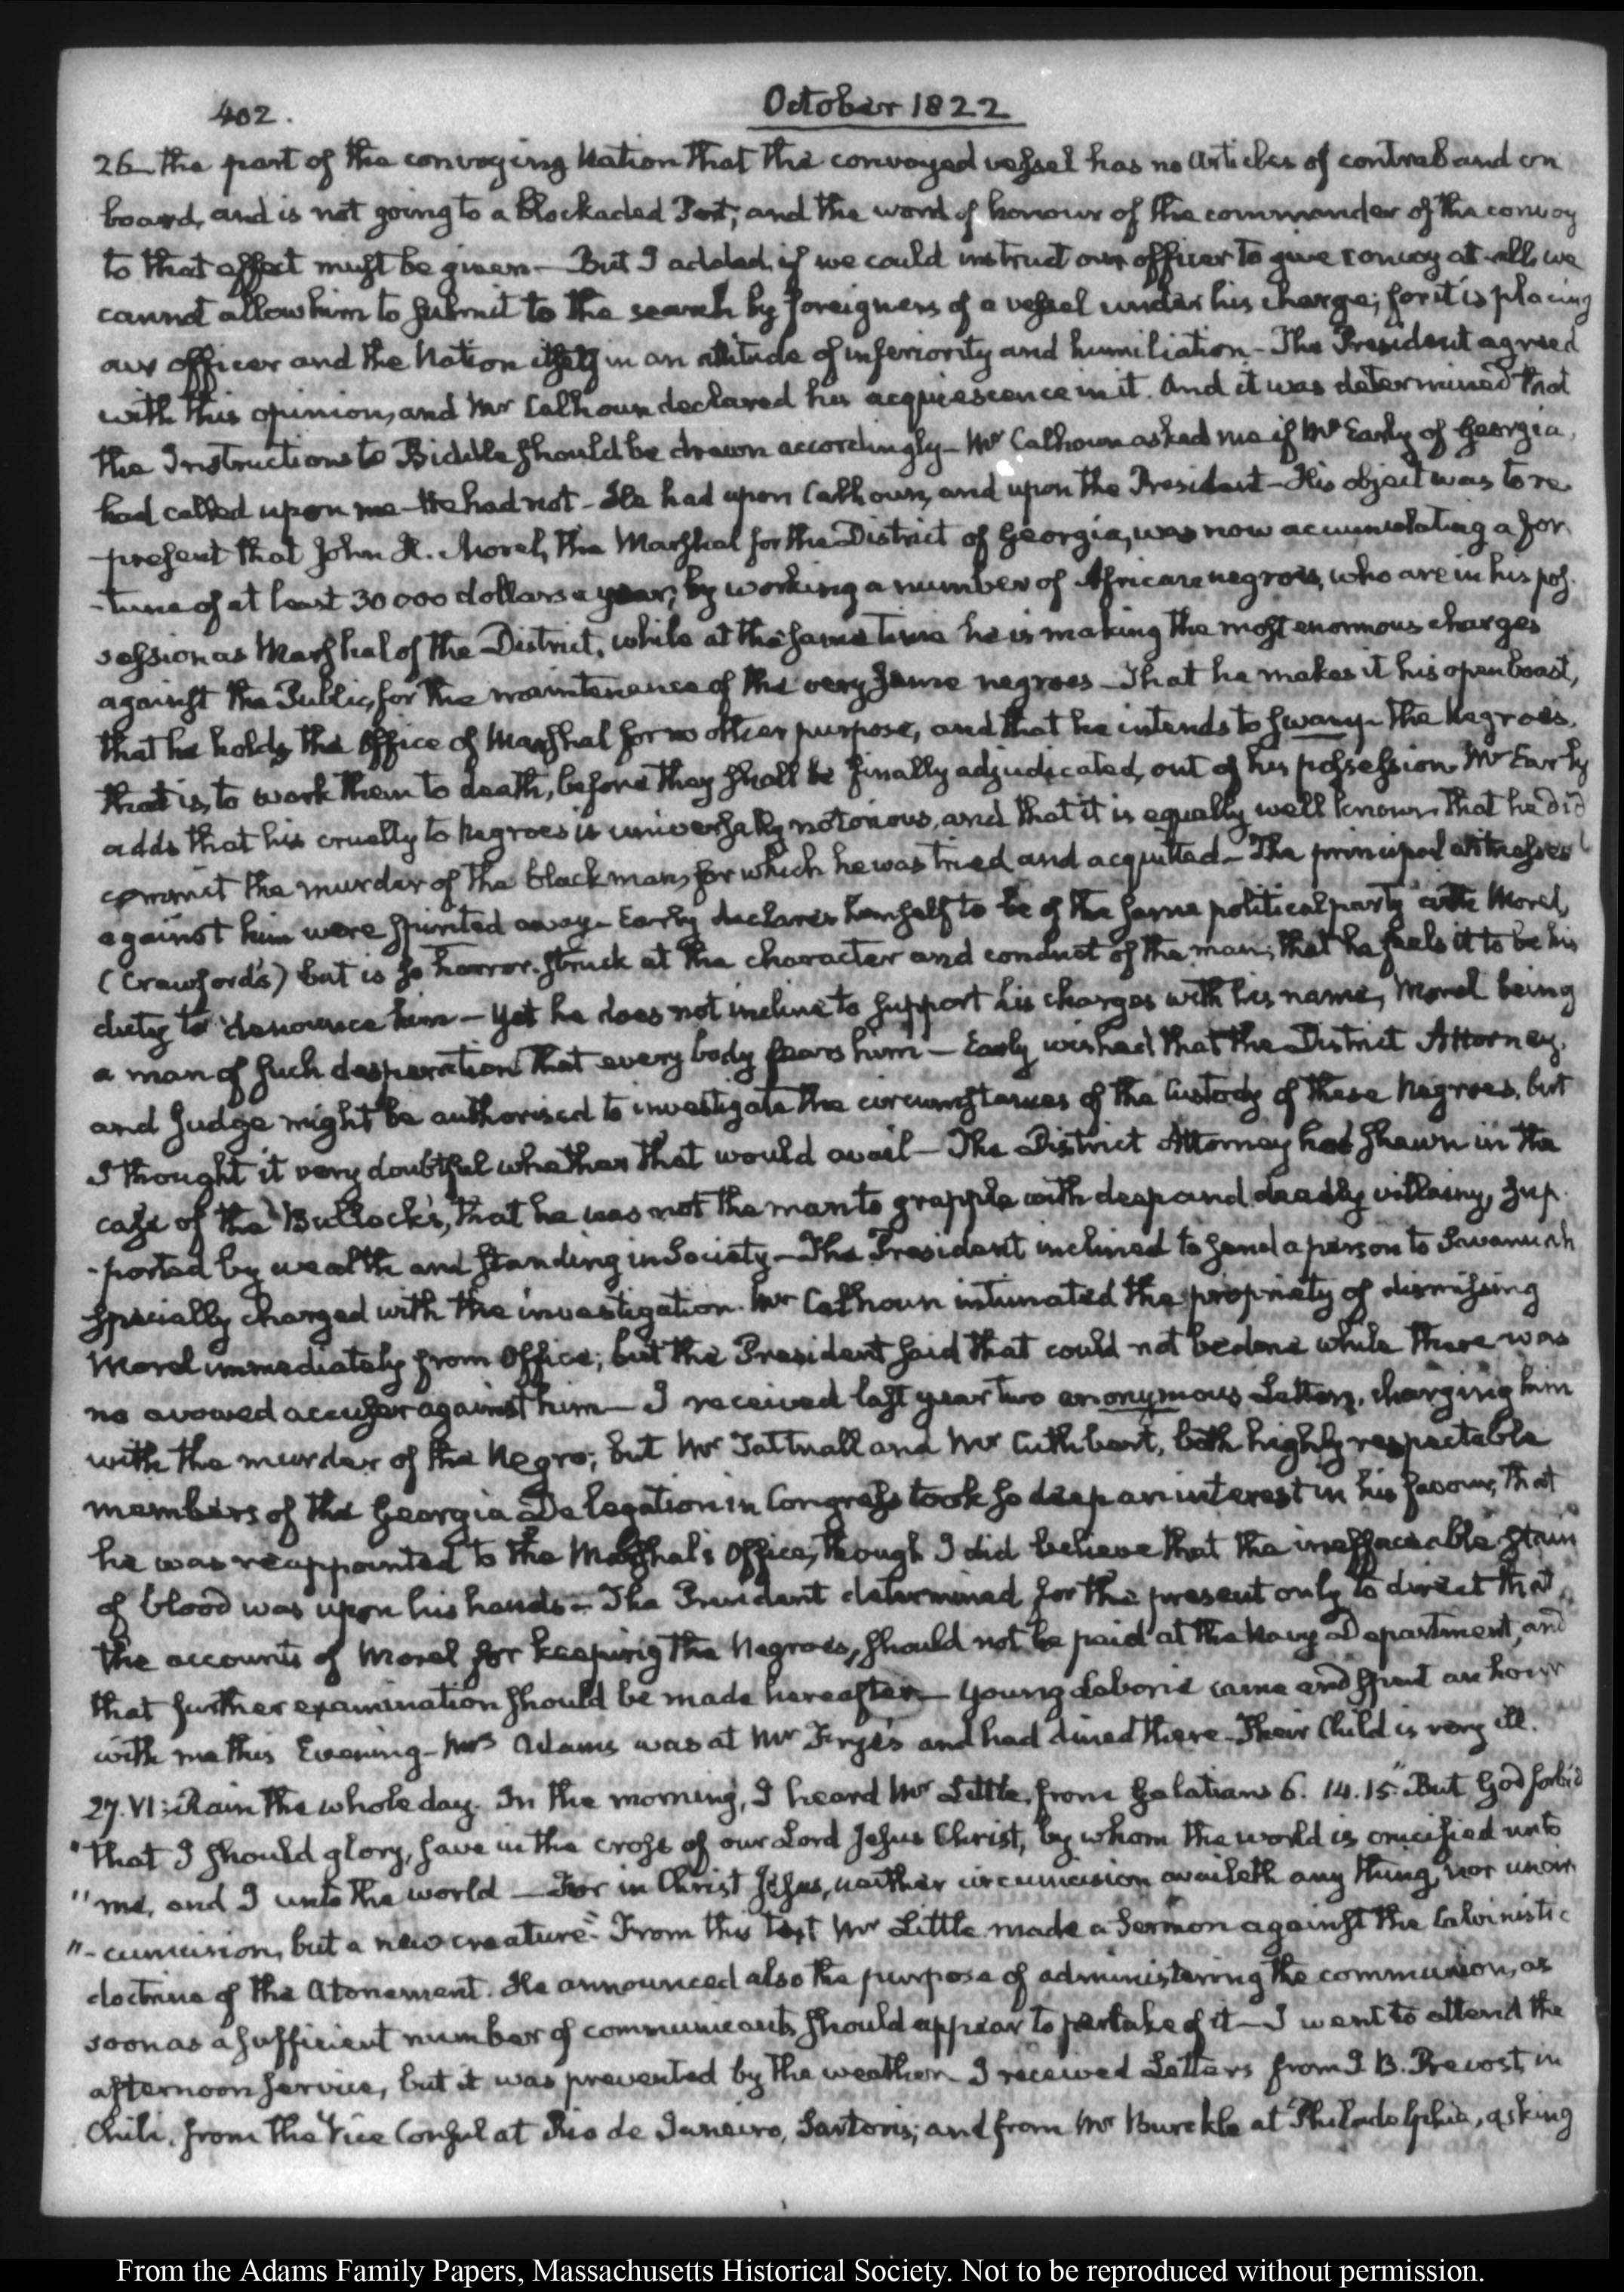 402.
October 1822
26_ the part of the convoying Nation that the convoyed vessel has no articles of contraband on
board, and is not going to a blockaded Port; and the word of honour of the commander of the convoy
to that effect must be given — But I added, if we could instruct our officer to give convoy at all, we
cannot allow him to submit to the search by foreigners of a vessel under his charge; for it is placing
our officer and the Nation itself in an attitude of inferiority and humiliation — The President agreed
with this opinion, and Mr Calhoun declared his acquiescence in it. And it was determined that
the Instructions to Biddle should be drawn accordingly — Mr Calhoun asked me if Mr Early of Georgia,
had called upon me — He had not — He had upon Calhoun, and upon the President — His object was to re-
-present that John H. Morel, the Marshal for the District of Georgia, was now accumulating a for-
-tune of at least 30000 dollars a year, by working a number of African negroes, who are in his pos-
session as Marshal of the District, while at the same time he is making the most enormous charges
against the Public, for the maintenance of the very same negroes — That he makes it his open boast,
that he holds the Office of Marshal for no other purpose, and that he intends to swamp the Negroes.
that is, to work them to death, before they shall be finally adjudicated, out of his possession. Mr Early
adds that his cruelty to Negroes is universally notorious, and that it is equally well known that he did
commit the murder of the black man, for which he was tried and acquitted — The principal witnesses
against him were spirited away — Early declares himself to be of the same political party with Morel,
(Crawford's) but is so horror-struck at the character and conduct of the man, that he feels it to be his
duty to denounce him — Yet he does not incline to support his charges with his name, Morel being
a man of such desperation that every body fears him — Early wished that the District Attorney,
and Judge might be authorised to investigate the circumstances of the Custody of these Negroes, but
I thought it very doubtful whether that would avail — The District Attorney had shewn in the
case of the Bullocks, that he was not the man to grapple with deep and deadly villainy, sup-
-ported by wealth and standing in Society — The President inclined to send a person to Savannah
specially charged with the investigation. Mr Calhoun intimated the propriety of dismissing
Morel immediately from Office; but the President said that could not be done while there was
no avowed accuser against him — I received last year two anonymous Letters, charging him
with the murder of the Negro; but Mr Tattnall and Mr Cuthbert, both highly respectable
members of the Georgia Delegation in Congress took so deep an interest in his favour, that
he was reappointed to the Marshal's Office, though I did believe that the ineffaceable stain
of blood was upon his hands — The President determined for the present only to direct that
the accounts of Morel for keeping the Negroes, should not be paid at the Navy Department, and
that further examination should be made hereafter — Young Laborie came and spent an hour
with me this Evening — Mrs Adams was at Mr Frye's and had dined there — Their Child is very ill.
27. VI: Rain the whole day. In the morning, I heard Mr Little, from Galatians 6. 14. 15. "But God forbid
"that I should glory, save in the cross of our Lord Jesus Christ, by whom the world is crucified unto
"me, and I unto the world — For in Christ Jesus, neither circumcision availeth any thing, nor uncir-
"-cumcision, but a new creature." From this text Mr Little made a Sermon against the Calvinistic
doctrine of the Atonement. He announced also the purpose of administering the communion, as
soon as a sufficient number of communicants should appear to partake of it — I went to attend the
afternoon service, but it was prevented by the weather — I received Letters from J. B. Prevost, in
Chili, from the Vice Consul at Rio de Janeiro, Sartoris; and from Mr at Philadelphia, asking
From the Adams Family Papers, Massachusetts Historical Society. Not to be reproduced without permission.